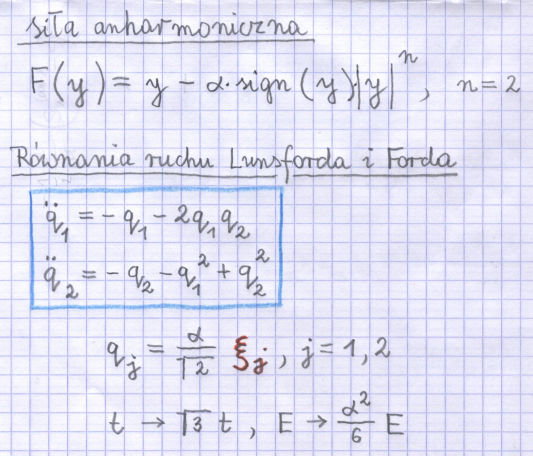 siła anharmoniczna
F(y) = y - α·sign(y)·|y|ⁿ, n=2
Równania ruchu Lunsforda i Forda
q̈₁ = -q₁ - 2q₁q₂
q̈₂ = -q₂ - q₁² + q₂²
qⱼ = α/√2 ξⱼ, j = 1, 2
t → √3 t, E → α²/6 E